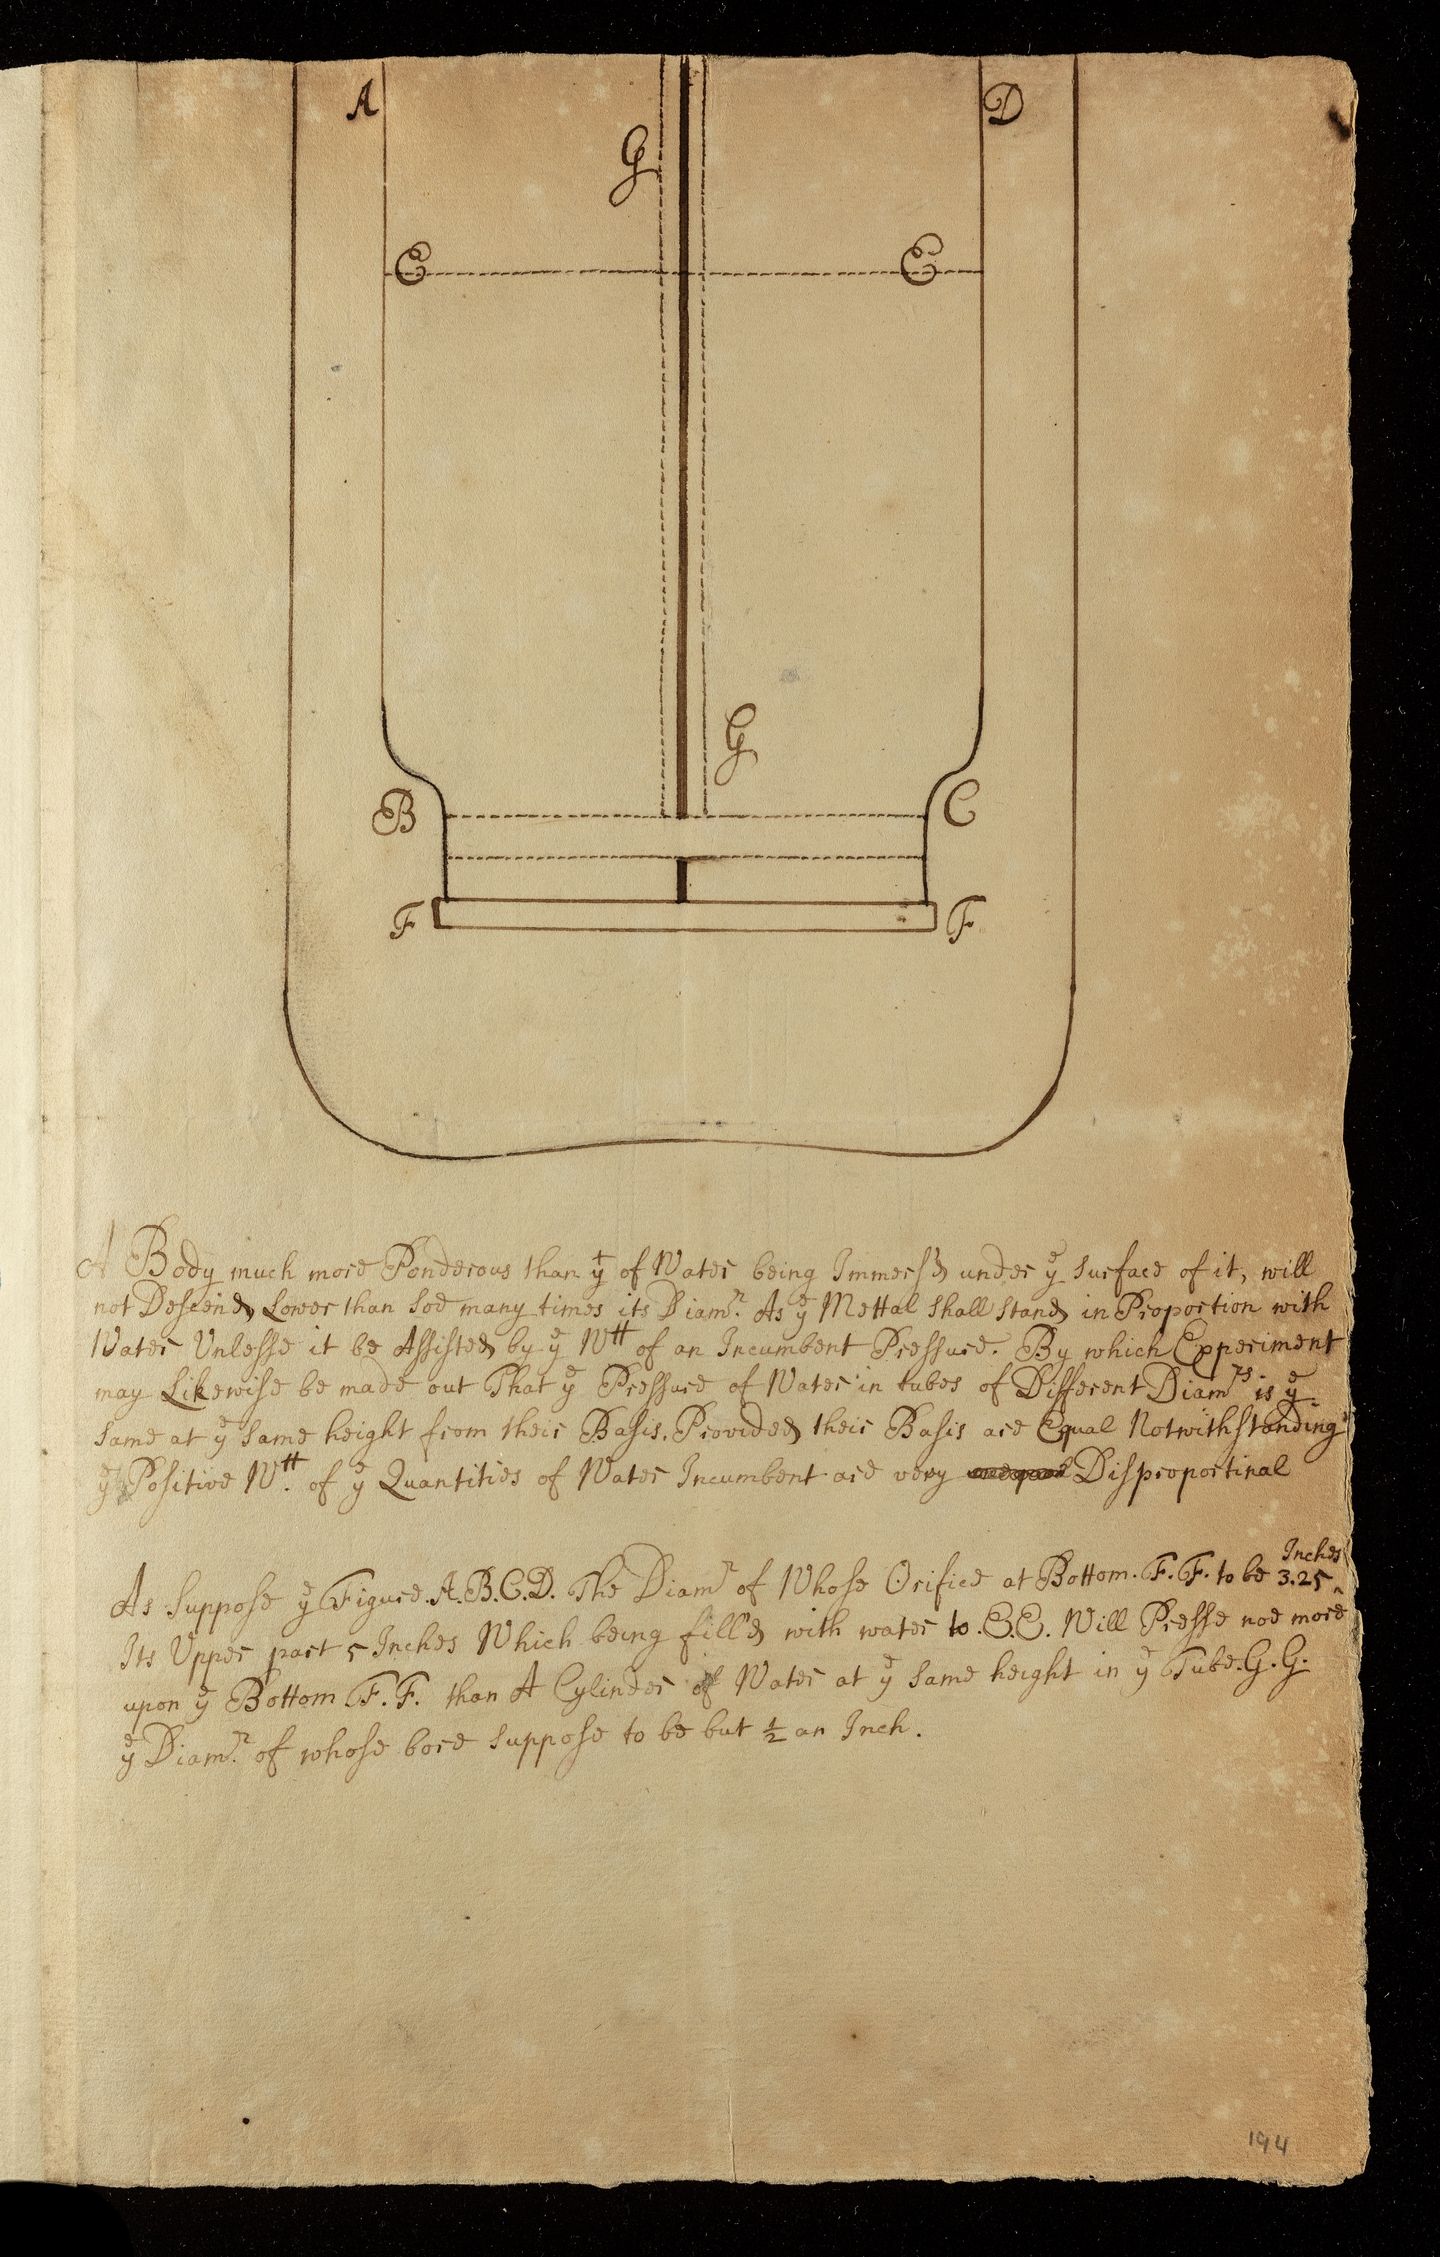 A
D
G
E
E
G
B
C
F
F
A Body much more Ponderous than yᵗ of Water being Immers'd under yᵉ surface of it, will
not Descend Lower than soe many times its Diamʳ. As yᵉ Mettal shall stand in Proportion with
Water Unlesse it be Assisted by yᵉ Wᵗᵗ of an Incumbent Pressure. By which Experiment
may Likewise be made out That yᵉ Pressure of Water in tubes of Different Diamʳˢ is yᵉ
same at yᵉ same height from their Basis. Provided their Basis are Equal Notwithstanding
yᵉ Positive Wᵗᵗ. of yᵉ Quantities of Water Incumbent are very Disproportinal
As suppose yᵉ Figure. A. B. C. D. The Diamʳ of Whose Orifice at Bottom. F. F. to be 3.25 ‸ Inches
Its Upper part 5 Inches Which being fill'd with water to .E.E. Will Presse noe more
upon yᵉ Bottom F. F. than A Cylinder of Water at yᵉ same height in yᵉ Tube. G. G.
yᵉ Diamʳ. of whose bore suppose to be but ½ an Inch.
194